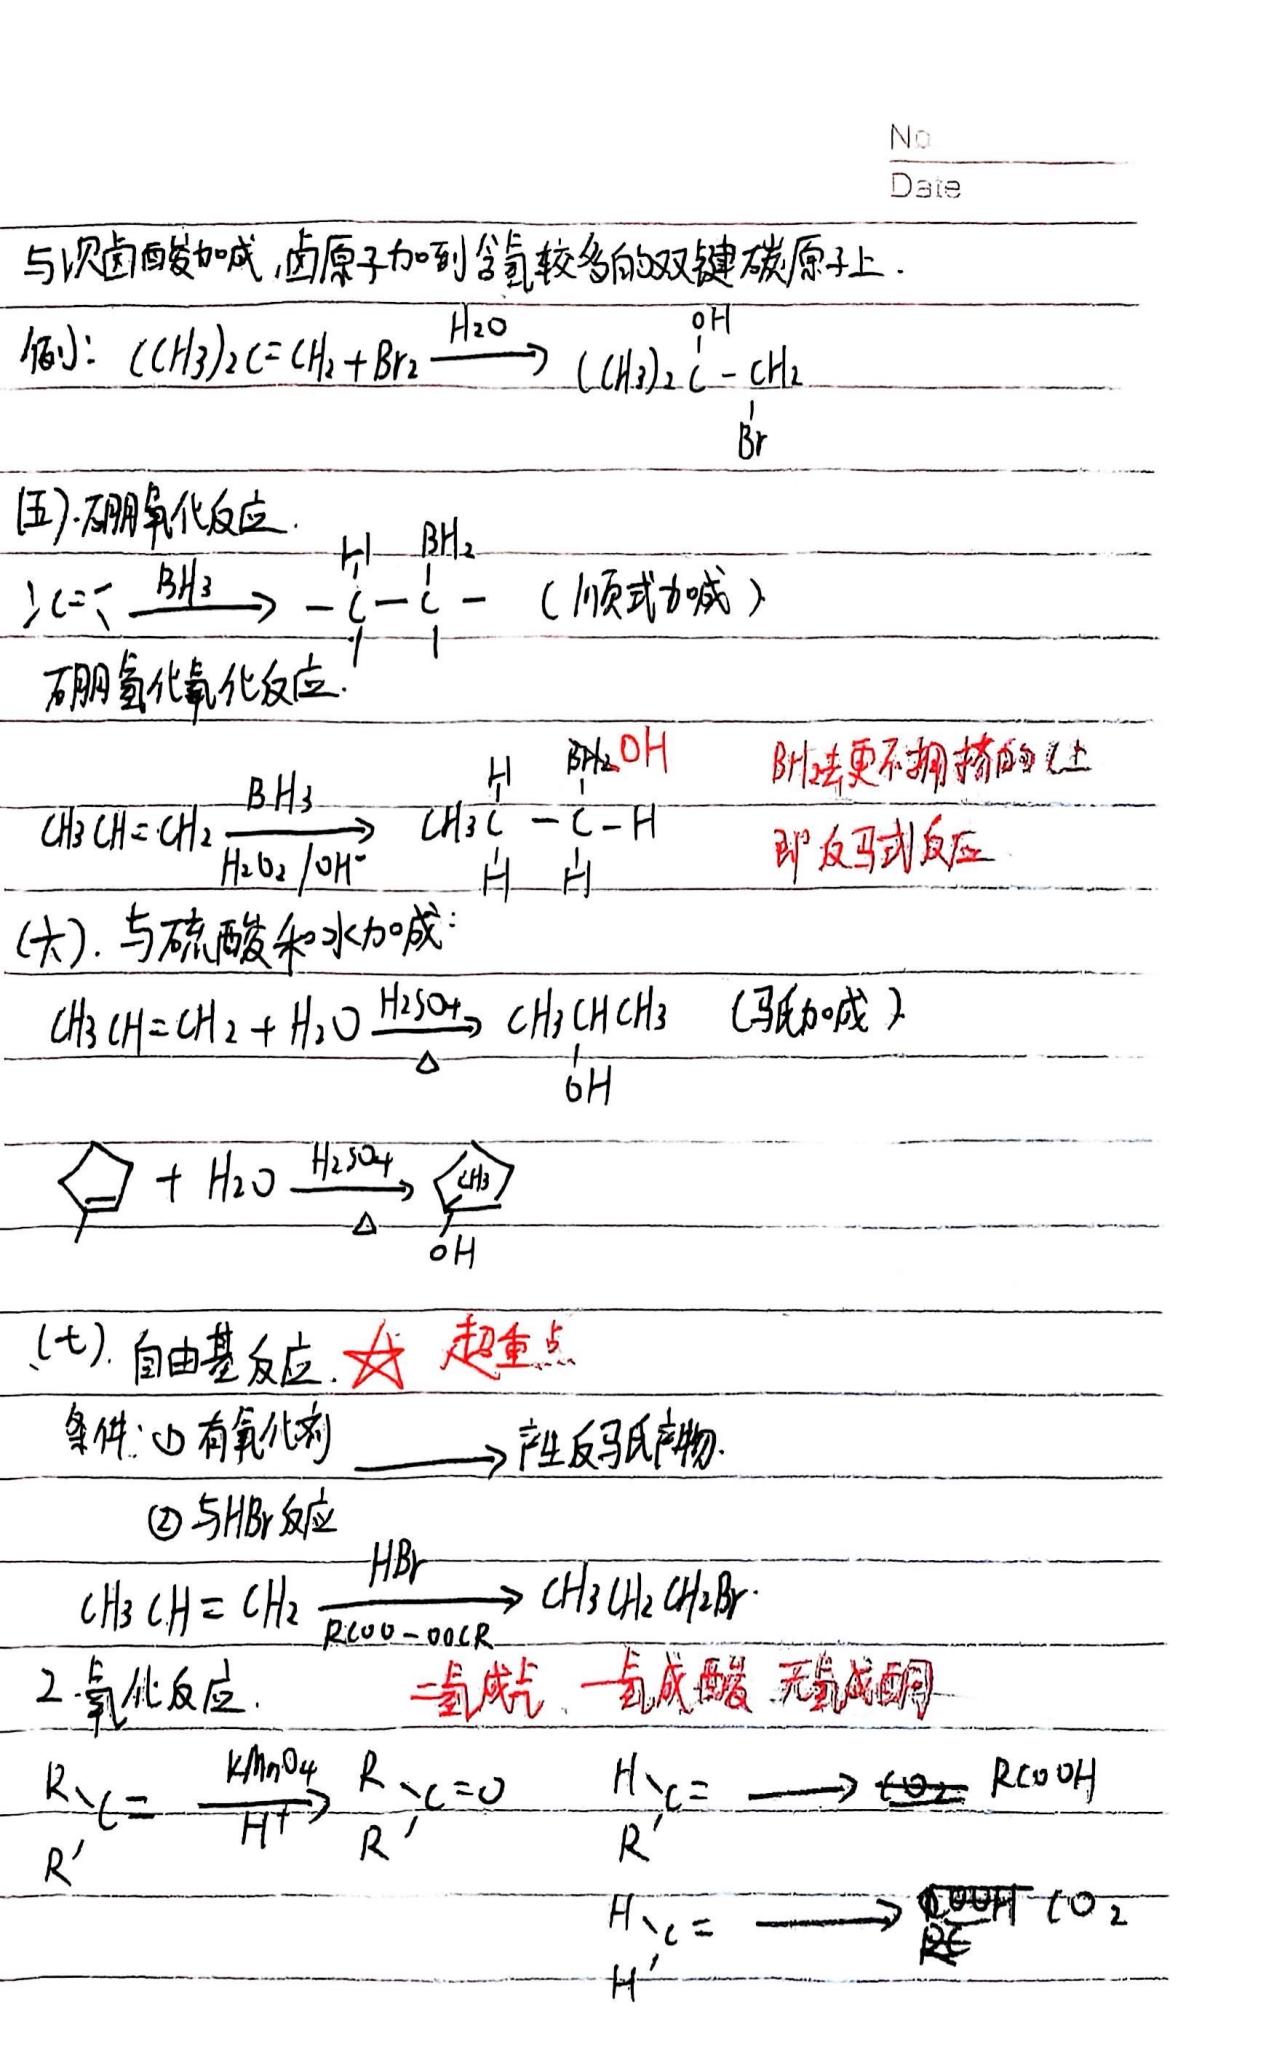 No
Date
与次卤酸加成,卤原子加到含氢较多的双键碳原子上.
例: (CH3)2C=CH2+Br2 H2O→ (CH3)2C-CH2
OH
Br
(五).硼氧化反应.
C=C BH3→ -C-C- (顺式加成)
H BH2
硼氢化氧化反应.
CH3CH=CH2 BH3→ H2O2/OH- CH3C-C-H
H BH2 OH
H H
BH2去更不拥挤的C上
即反马式反应
(六).与硫酸和水加成:
CH3CH=CH2+H2O H2SO4→ △ CH3CHCH3 (马氏加成)
OH
+ H2O H2SO4→ △ CH3
OH
(七).自由基反应.☆ 超重点
条件:①有氧化剂 → 产生反马氏产物.
②与HBr反应
CH3CH=CH2 HBr→ RCOO-OOCR CH3CH2CH2Br.
2.氧化反应. 二氢成气 一氢成酸 无氢成酮
R R' C= KMnO4→ H+ R R' C=O H R' C= → CO2 RCOOH
H H' C= → COOH CO2